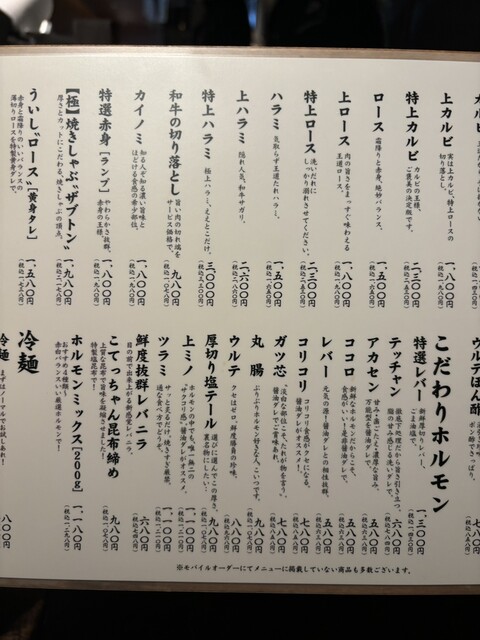 上カルビ
実は上カルビ、特上ロースの
切り落とし。
一、八〇〇円
特上カルビ
カルビの王様。
ご褒美の決定版です。
二、三〇〇円
ロース
霜降りと赤身、絶妙バランス。
一、五〇〇円
上ロース
肉の旨さをまっすぐ味わえる
王道ロース。
一、八〇〇円
特上ロース
洗いだれに
しっかり溺れさせてください。
二、三〇〇円
ハラミ
気取らず王道たれハラミ。
一、五〇〇円
上ハラミ
隠れ人気、和牛サガリ。
二、六〇〇円
特上ハラミ
極上ハラミ。ええとこだけ。
三、〇〇〇円
和牛の切り落とし
旨い肉の切れ端を
サービス価格で。
九八〇円
(税込一、〇七八円)
カイノミ
知る人ぞ知る濃い旨味と
ほどける食感の希少部位。
一、八〇〇円
特選赤身[ランプ]
やわらかさ抜群、
赤身の王様。
一、八〇〇円
【極】焼きしゃぶ“ザブトン”
厚さとカットにこだわる、焼きしゃぶの頂点。
一、九八〇円
ういし“ロース”[黄身タレ]
赤身と霜降りのいいバランスの
薄切りロースを特製黄身ダレで。
一、五八〇円
ウルテぽん酢
ポン酢でさっぱり。
こだわりホルモン
特選レバー
新鮮厚切りレバー、
ごま油塩で。
一、三〇〇円
(税込一、四三〇円)
テッチャン
徹底下処理だから旨さ引き立つ、
脂の甘み感じる洗いダレで。
六八〇円
(税込七四八円)
アカセン
甘み上濃ごたる濃厚な旨み。
五八〇円
(税込六三八円)
ココロ
新鮮なホルモンだからこそ、
食感がいい!是非醤油ダレで。
五八〇円
(税込六三八円)
レバー
元気の源!醤油ダレとの相性抜群。
五八〇円
(税込六三八円)
コリコリ
コリコリ食感がクセになる。
醤油ダレがオススメ!
七八〇円
(税込八五八円)
ガツ芯
淡白な部位こそ、たれが物を言う。
醤油ダレでご賞味あれ。
七八〇円
(税込八五八円)
丸腸
ぷりぷりホルモン好きな人、こいつです。
九八〇円
(税込一、〇七八円)
ウルテ
クセはゼロ。鮮度勝負の珍味。
厚切り塩テール
選びに選んでこの厚さ。
裏名物にしたい…
九八〇円
(税込一、〇七八円)
上ミノ
ホルモンの中でも、唯一無二の
“サクコリ感”醤油ダレがオススメ。
一、一〇〇円
(税込一、二一〇円)
ツラミ
サッと炙るだけ。焼きすぎ厳禁、
通な食べ方でどうぞ。
一、一〇〇円
(税込一、二一〇円)
鮮度抜群レバニラ
目の前で出来上がる新感覚レバニラ。
六八〇円
(税込七四八円)
こてっちゃん昆布締め
上質な昆布で旨味を凝縮させました!
特製塩昆布で!
九八〇円
(税込一、〇七八円)
ホルモンミックス[200g]
おすすめ4種類〜
赤白バランスいい厳選ホルモンで!
一、一八〇円
(税込一、二九八円)
冷麺
冷麺
まずはノーマルでお試しあれ!
八〇〇円
※モバイルオーダーにてメニューに掲載していない商品も多数ございます。